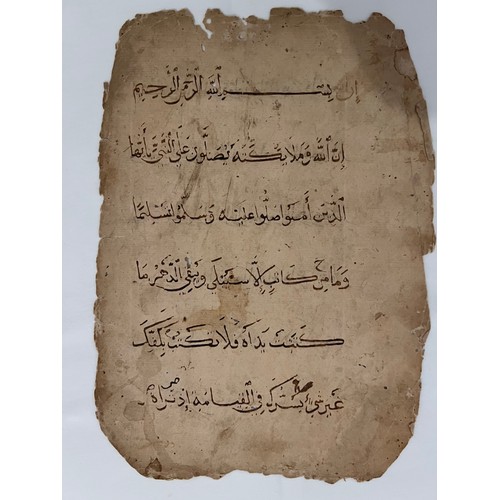 بسم الله الرحمن الرحيم
إن الله وملائكته يصلون على النبي يا أيها
الذين آمنوا صلوا عليه وسلموا تسليما
وما من كاتب إلا سيبلى ويبقي الدهر ما
كتبت يداه فلا تكتب بكفك
غير شيء يسرك في القيامة إذ تراه